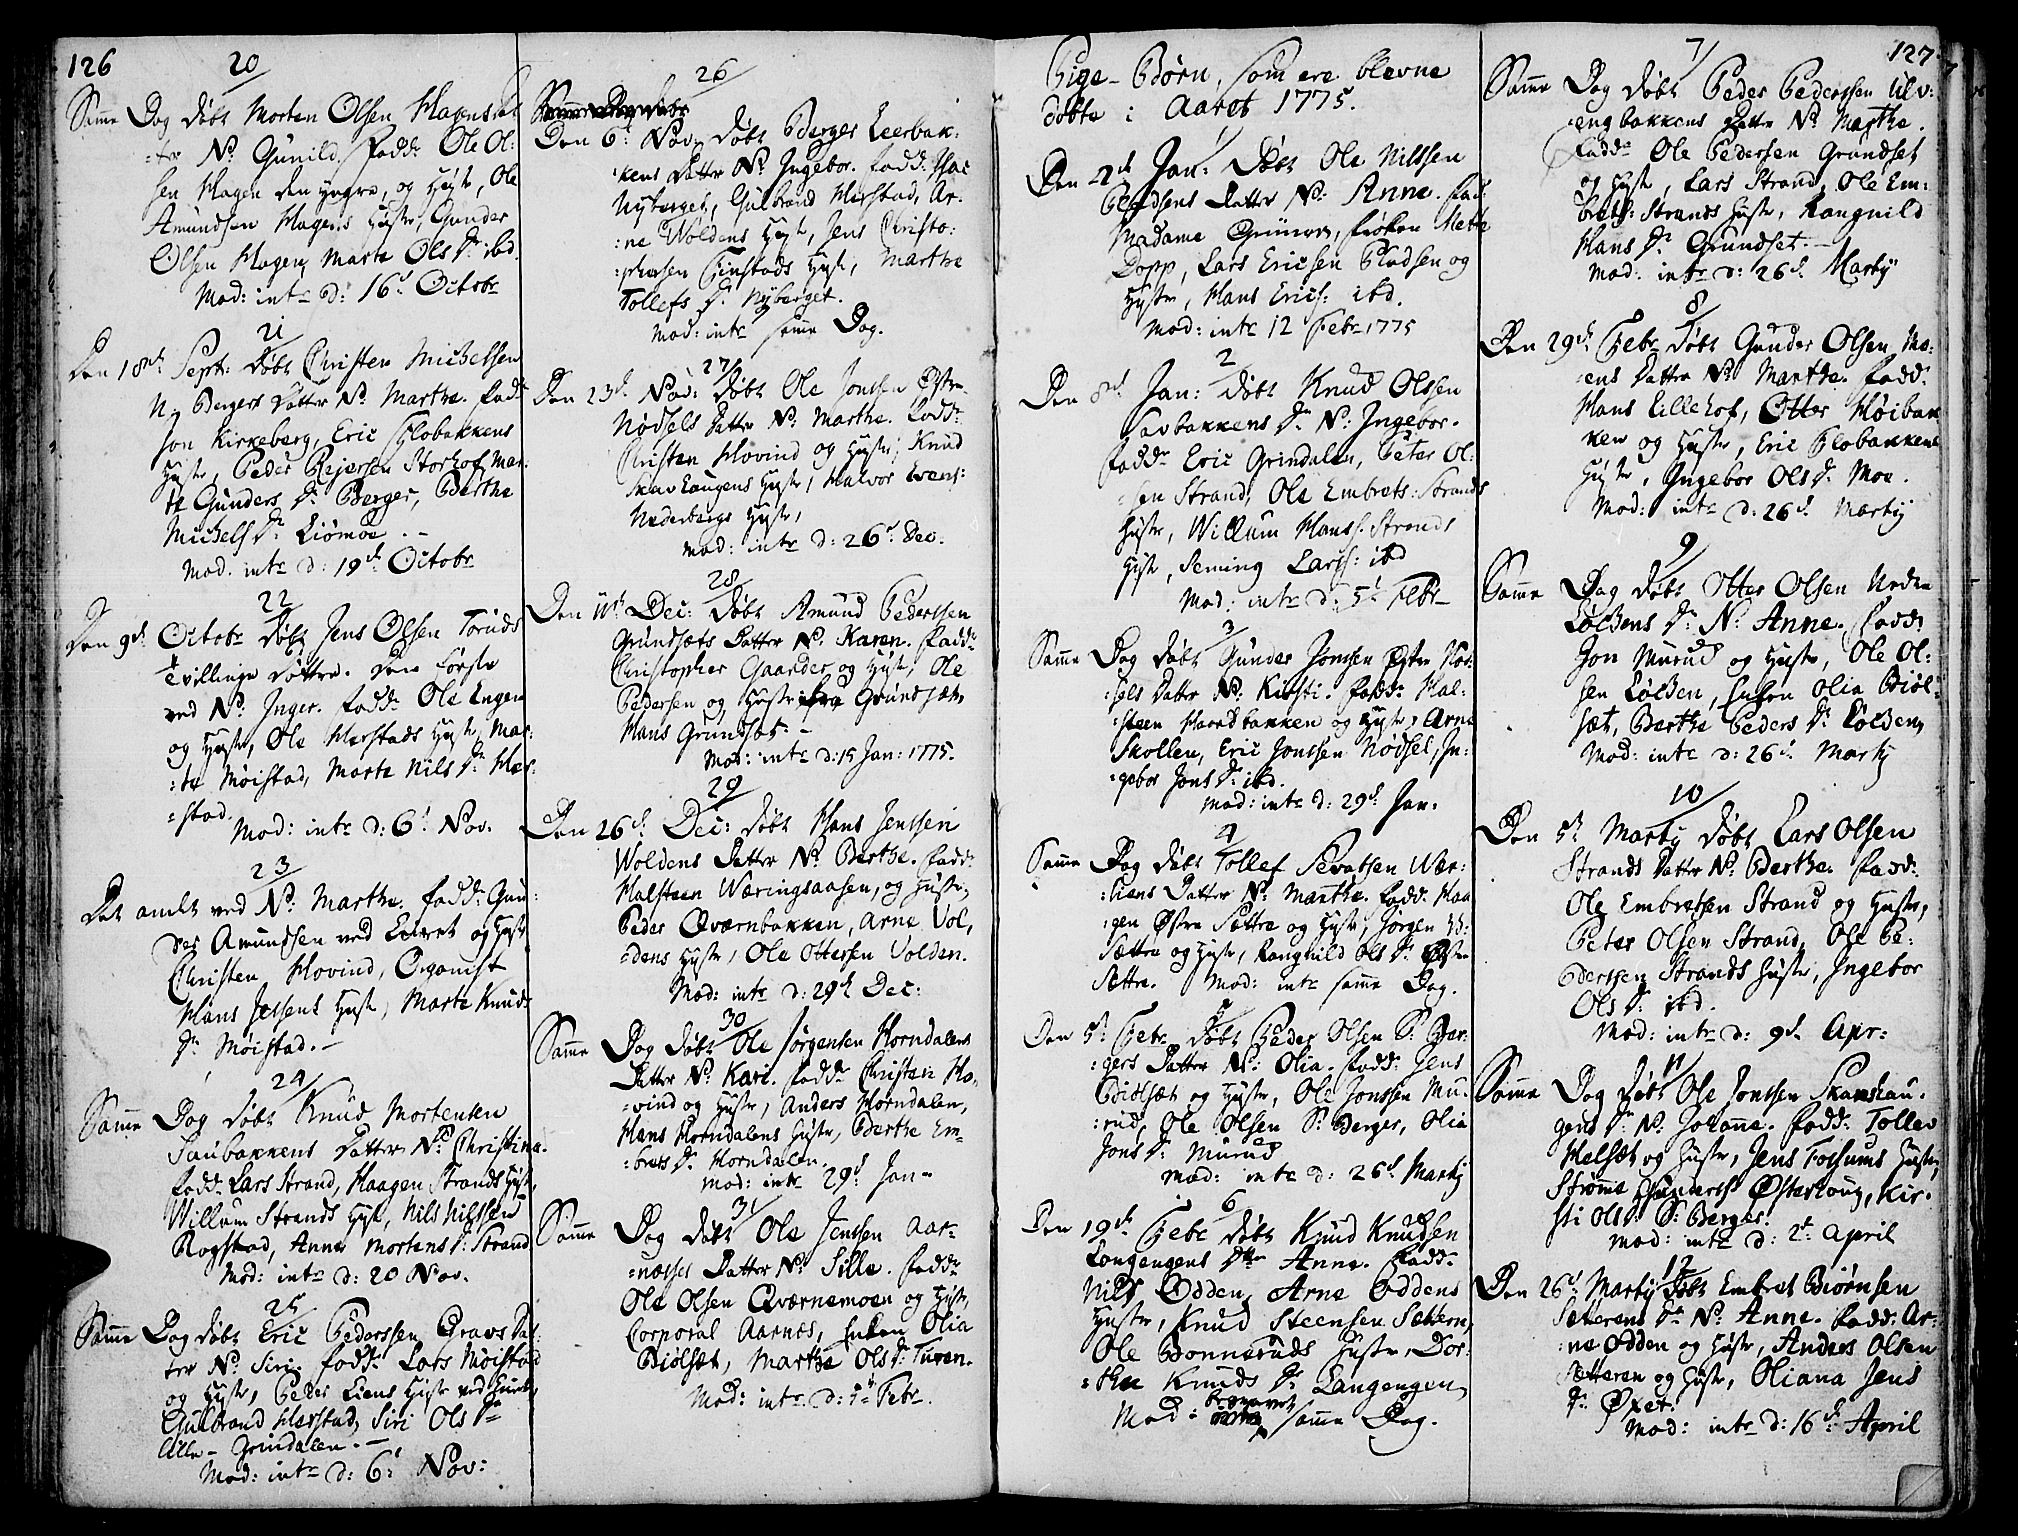 126
20
Samme Dag døbt Morten Olsen Hagens Dat
:ter N: Gunild. fadd: Ole Ol:
sen Hagen den yngre, og Hust, Ole
Amundsen Hagens Hustr, Gunder
Olsen Hagen, Marte Ols Dr ibd.
Mod: intr d: 16d Octobr
21
Den 18de Sept: døbt Christen Michelsen
N: Bergers Datter N: Marthe. fadd:
Jon Kirkeberg, Eric Flobakkens
Hustr, Peder Rejersen Storhof, Mar:
te Gunders Dr Berger, Berthe
Michels Dr Liømoe. -
Mod. intr d: 19d Octobr
22
Den 9d Octobr døbt Jens Olsen Toruds
tvillinge Døttre. den første
ved N: Inger. fadd: Ole Engen
og Hustr, Ole Harstads Hustr, Mar:
:te Møistad, Marte Nils Dr Har:
:stad.
Mod: intr d: 6d Nov.
23
Det andet ved N: Marthe. fadd: Gun:
der Amundsen ved Leiret og Hust
Christen Hovind, Organist
Hans Jessens Hust, Marte Knuds
Dr Møistad. -
24
Samme Dag døbt Knud Mortensen
Saubakkens Datter N: Christine.
fadd: Lars Strand, Haagen Strands Hust,
Willum Strands Hust, Nils Nilssen
Rogstad, Anne Mortens Dr Strand
Mod: intr d: 20 Nov.
25
Samme Dag døbt Eric Pederssen Gravs Dat:
ter N: Siri. fadd: Lars Møistad
og Hustr, Peder Liens Hustr ved Huset,
Gulbrand Harstad, Siri Ols Dr
Lille-Grindalen. -
Mod: intr d: 6d Nov:
26
Den 6d Nov. døbt Berger Leerbak:
:kens Datter N: Ingebor. fadd:
Nyberget, Gulbrand Harstad, Ar:
:ne Woldens Hust, Jens Christo:
:phersen Finstads Hust, Marthe
Tollefs Dr Nyberget.
Mod: intr samme Dag.
27
Den 23d Nov: døbt Ole Jonsen Østre
Nødsels Datter N: Marthe. Fadd:
Christen Hovind og Hustr, Knud
Skavlaugens Hustr, Halvor Evens:
Nederbergs Hustr,
Mod: intr d: 26d Dec.
28
Den 11te Dec: døbt Amund Pederssen
Grundsæts Datter N: Karen. Fadd:
Christopher Gaarder og Hust, Ole
Pedersen og Hustr Grundsæt,
Hans Grundsæt. -
Mod: intr d: 15 Jan: 1775.
29
Den 26d Dec: døbt Hans Jenssen
Woldens Datter N: Berthe. fadd:
Halsteen Wæringsaasen, og Hustr,
Peder Qværnbakken, Arne Vol,
:dens Hustr, Ole Ottersen Volden.
Mod: intr d: 29d Dec:
30
Samme Dag døbt Ole Jørgensen Horndalens
Datter N: Kari. fadd: Christen Ho,
:vind og Hustr, Anders Horndalen,
Hans Horndalens Hustr, Berthe Em-
:brets Dr Horndalen.
Mod: intr 29d Jan-
31
Samme Dag døbt Ole Jenssen Aar-
:næsses Datter N: Sille. fadd:
Ole Olsen Qværnemoen og Hustr,
Corporal Aarnæs, Enken Olia
Biølsæt, Marthe Ols Dr Turen.
Mod: intr d: Febr.
Pige-Børn, som ere blevne
døbte i Aaret 1775.
1
Den Jan: døbt Ole Nilssen
Pladsens Datter N: Anne. Fad:
Madame , frøken Mette
Dopp, Lars Ericsen Pladsen og
Hustr, Hans Erics: ibd.
Mod: intr 12 Febr 1775
2
Den 8d Jan: døbt Knud Olsen
Savbakkens Dr N: Ingebor.
fadd: Eric Grindalen, Peter Ol:
:sen Strand, Ole Embrets: Strands
Hustr, Willum Hanss. Strands
Hust, Seming Larss: ibd
Mod: intr d: 5d Febr-
3
Samme Dag døbt Gunder Jonssen Østre Nød:
:sels Datter N: Kirsti. fadd: Hal:
:steen Haradbakken og Hustr, Arne
Skollen, Eric Jonssen Nødsel, In:
:gebor Jons Dr ibd.
Mod: intr d: 29d Jan.
4
Samme Dag døbt Tollef Sevatsen Wær:
:liens Datter N: Marthe. fadd: Haa
:gen Østre Sættre og Hustr, Jørgen
Sættre og Hustr, Rangnild Ols Dr Østre
Sættre. Mod: intr samme Dag.
5
Den 5d Febr døbt Peder Olsen S: Ber:
:gers Datter N: Olia. fadd: Jens
Biølsæt og Hustr, Ole Jonssen Mu:
:rud, Ole Olsen S: Berger, Olia
Jons Dr Murud
Mod: intr d: 26d Martij
6
Den 19de Febr døbt Knud Knudsen
Langengens Dttr Anne. Fadd:
Nils Odden, Arne Oddens
Hustr, Knud Steensen Sættern,
Ole Bonneruds Hustr, Dor:
:the Knuds Dr Langengen,
Mod: begravet samme Dag.
127
7
Samme Dag døbt Peder Pederssen Ulv:
:engbakkens Datter N: Marthe.
Fadd: Ole Pedersen Grundset
og Hust, Lars Strand, Ole Em:
brets: Strands Hustr, Rangnild
Hans Dr Grundset. -
Mod. intr d: 26d Martij
8
Den 29d Febr døbt Gunder Olsen Mo:
:ens Datter N: Marthe. fadd:
Hans Lillehof, Otter Høibak
ken og Hustr, Eric Flobakkens
Hustr, Ingebor Ols Dr Moe.
Mod: intr d: 26d Martij
9
Samme Dag døbt Otter Olsen Nedre
Løkens Dr N: Anne. fadd:
Jon Murud og Hustr, Ole Ol:
sen Løken, Enken Olia Biøl:
sæt, Berthe Peders Dr Løken,
Mod: intr d: 26d Martij
10
Den 5d Martij døbt Lars Olsen
Strands Datter N: Berthe. fadd:
Ole Embretsen Strand og Hustr,
Peter Olsen Strand, Ole Pe:
:derssen Strands Hustr, Ingebor
Ols Dr ibd.
Mod: intr d: 9d Apr:
11
Samme Dag døbt Ole Jonssen Skavlau:
gens Dr N: Johanne. fadd: Tollev
Melsæt og Hustr, Jens Forsums Hustr,
Strømme Gunderss: Østerhoug, Kir:
sti Ols Dr S: Berger.
Mod: intr d: 2d April
12
Den 26d Martij døbt Embret Biørnsen
Sætterens Dr N: Anne. fadd: Ar:
:ne Odden og Hustr, Anders Olsen
Sætteren og Hustr, Oliana Jens
Dr Øxet.
Mod: intr d: 16d April